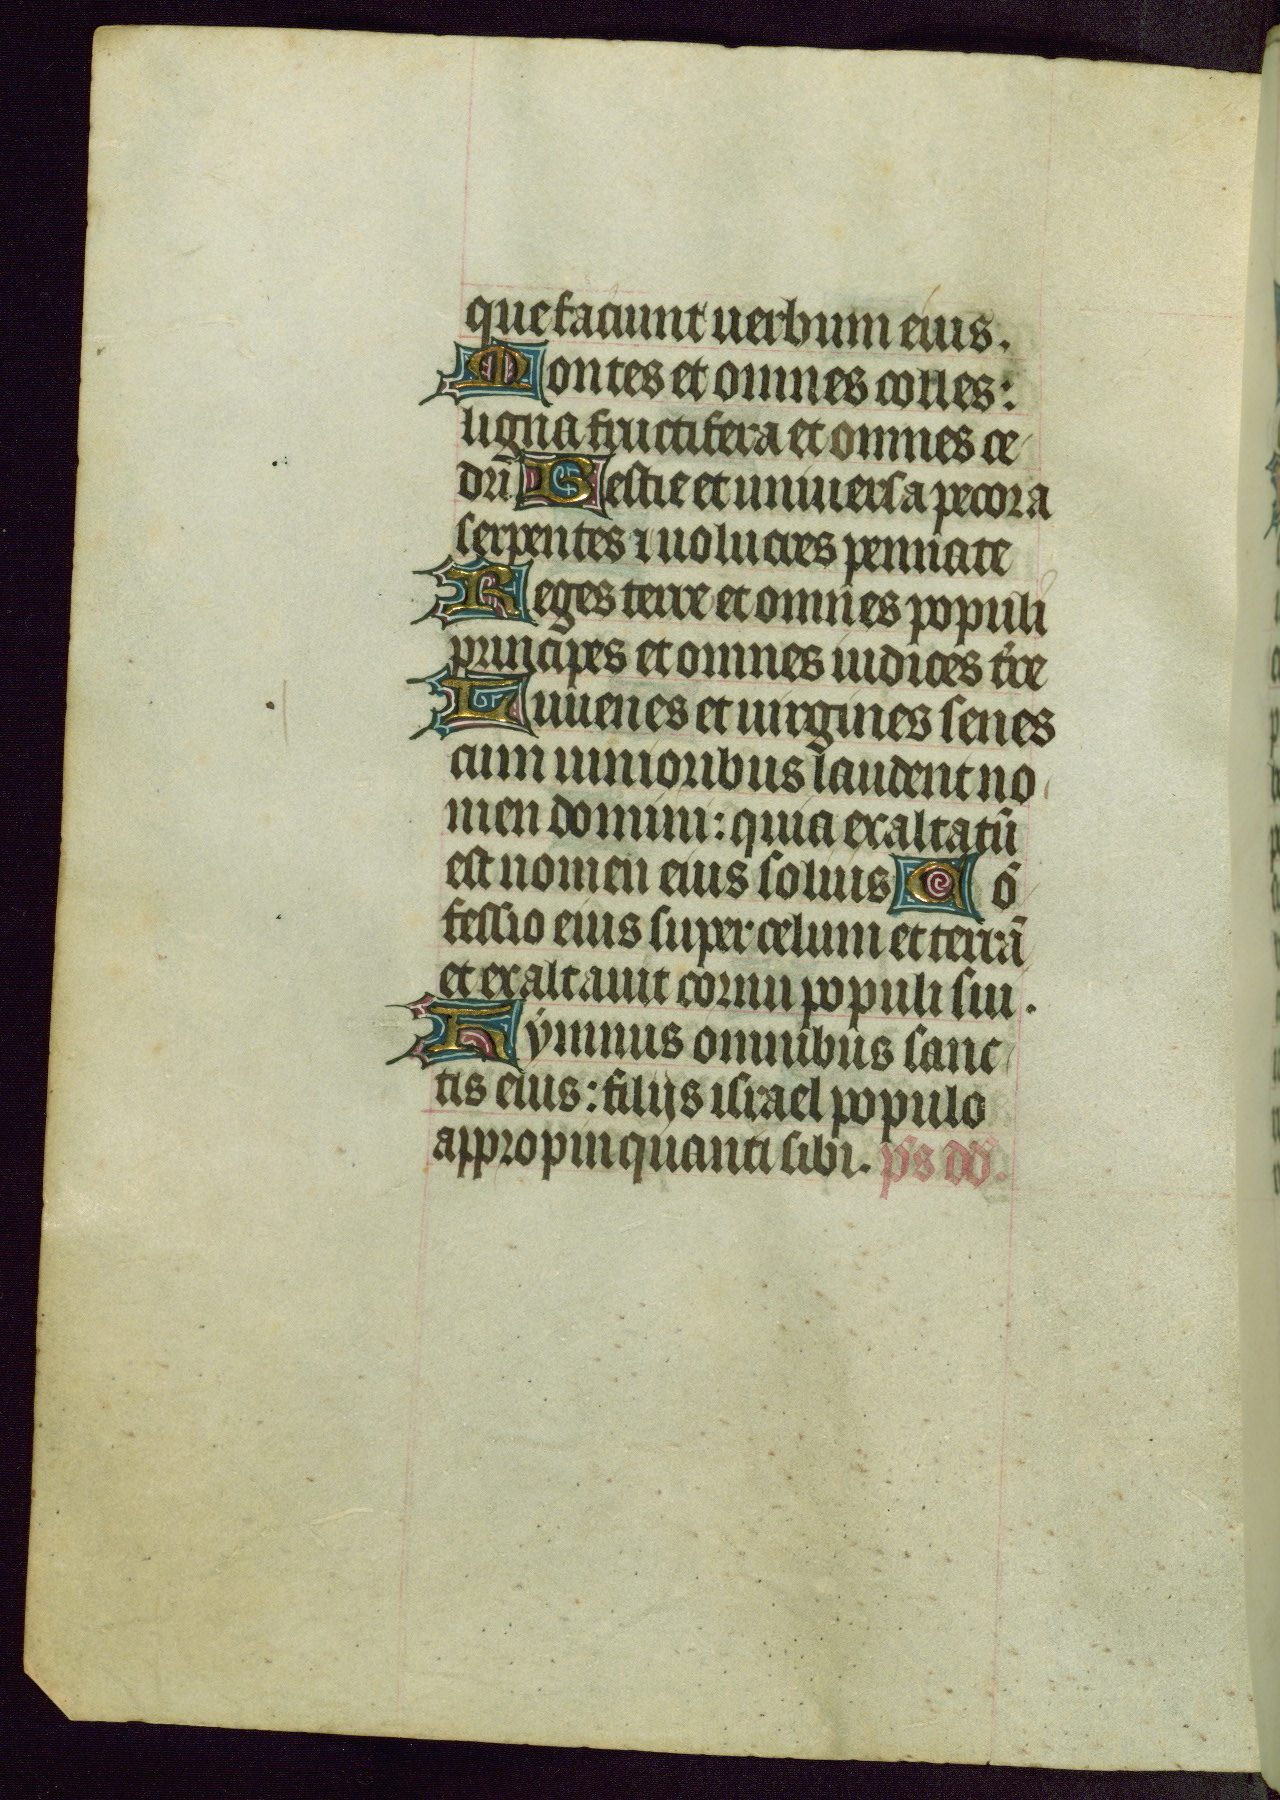 que faciunt uerbum eius.
Montes et omnes colles:
ligna fructifera et omnes ce
drı̄ Bestie et uniuersa pecora
serpentes ⁊ uolucres pennate
Reges terre et omnes populi
principes et omnes iudices t̄re
Iuuenes et uirgines senes
cum iunioribus laudent no
men domini: quia exaltatū
est nomen eius solius Cō
fessio eius super celum et terrā
et exaltauit cornu populi sui.
Hẏmnus omnibus sanc
tis eius: filijs israel populo
appropinquanti sibi. p̄s dd̄.